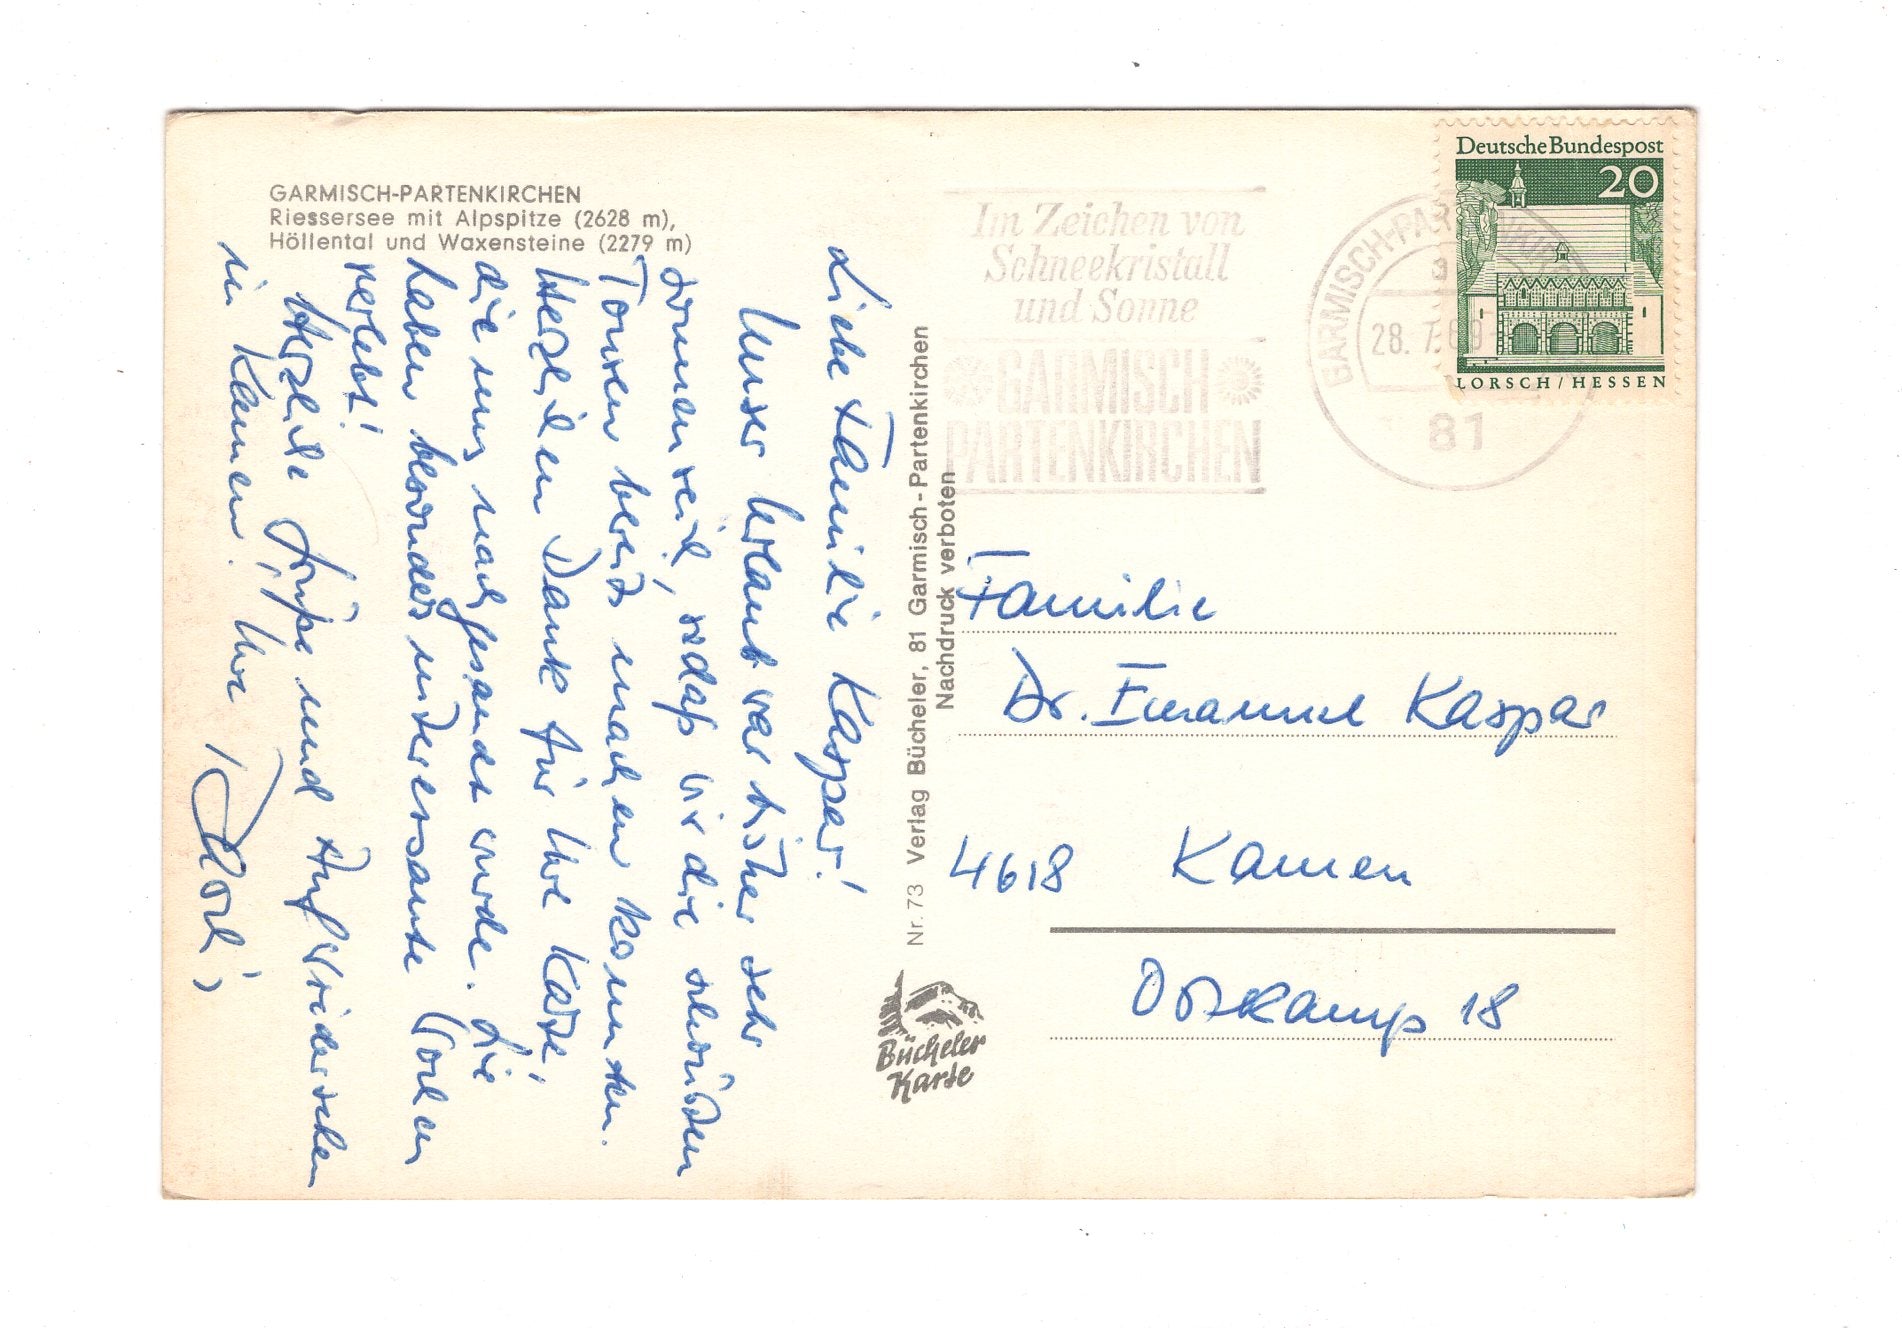 GARMISCH-PARTENKIRCHEN
Riessersee mit Alpspitze (2628 m),
Höllental und Waxensteine (2279 m)
Liebe Familie Kaspar!
Unser Urlaub war bisher sehr
sonnenreich, sodaß wir die schönsten
Touren bereits machen konnten.
Herzlichen Dank für Ihre Karte,
die uns nachgesandt wurde. Sie
haben besonders interessante Wochen
verlebt!
Herzliche Grüße und Auf Wiedersehen
in Kamen! Ihre
Nr. 73 Verlag Bücheler, 81 Garmisch-Partenkirchen
Nachdruck verboten
Bücheler
Karte
Im Zeichen von
Schneekristall
und Sonne
GARMISCH
PARTENKIRCHEN
GARMISCH-PARTENKIRCHEN
28.7.69
81
Deutsche Bundespost
20
LORSCH/HESSEN
Familie
Dr. Emanuel Kaspar
4618 Kamen
Ostkamp 18